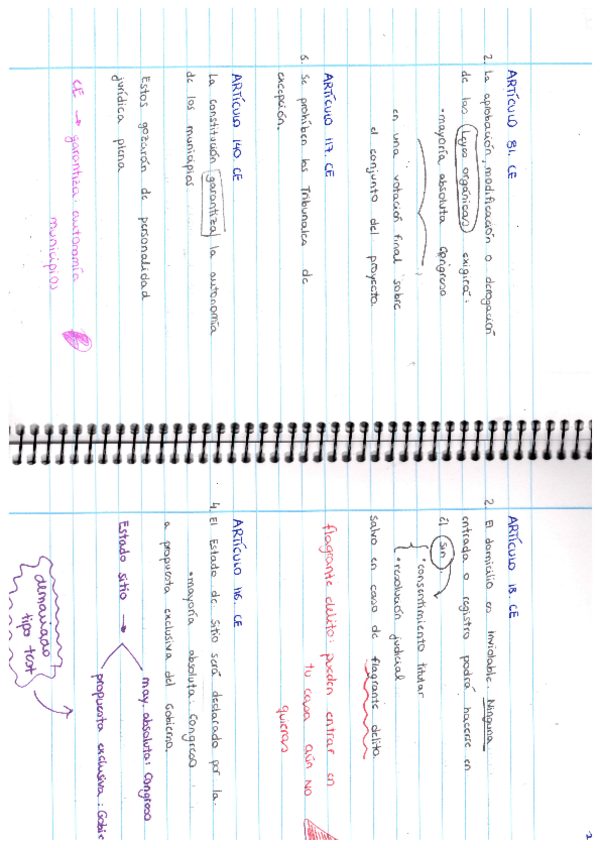 ARTÍCULO 81. CE
2. La aprobación, modificación o derogación
de las Leyes orgánicas exigirá:
• mayoría absoluta Congreso
en una votación final sobre
el conjunto del proyecto.
ARTÍCULO 117. CE
6. Se prohíben los Tribunales de
excepción.
ARTÍCULO 140. CE
La constitución garantiza la autonomía
de los municipios
Estos gozarán de personalidad
jurídica plena
CE → garantiza: autonomía
municipios
2
ARTÍCULO 18. CE
2. El domicilio es inviolable. Ninguna
entrada o registro podrá hacerse en
él sin
• consentimiento titular
• resolución judicial
salvo en caso de flagrante delito.
flagrante delito: pueden entrar en
tu casa aún NO
quieras
ARTÍCULO 116. CE
4. El Estado de Sitio será declarado por la
• mayoría absoluta: Congreso
a propuesta exclusiva del Gobierno.
Estado sitio →
may. absoluta: Congreso
propuesta exclusiva: Gobie
demasiado
tipo test